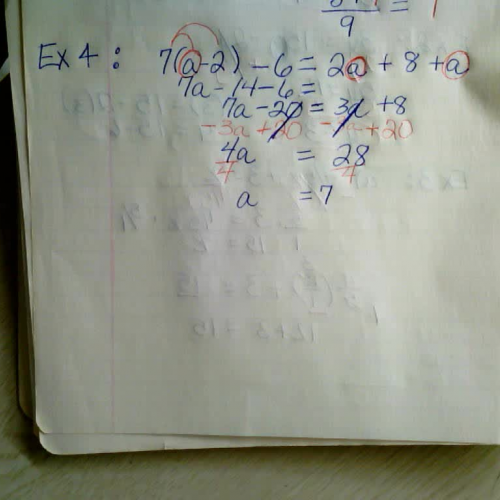 9
Ex 4 : 7(a-2) - 6 = 2a + 8 + a
7a - 14 - 6 =
7a - 20 = 3a + 8
-3a +20 -3a +20
4a = 28
4 4
a = 7